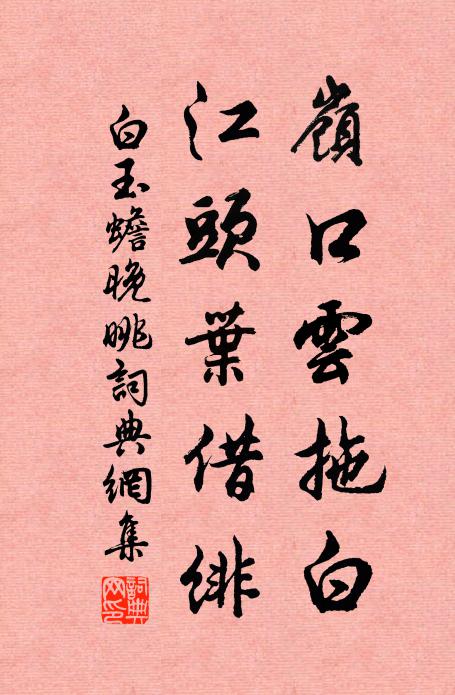 嶺口雲拖白
江頭葉借緋
白玉蟾晚眺詞典網集
詞典网印